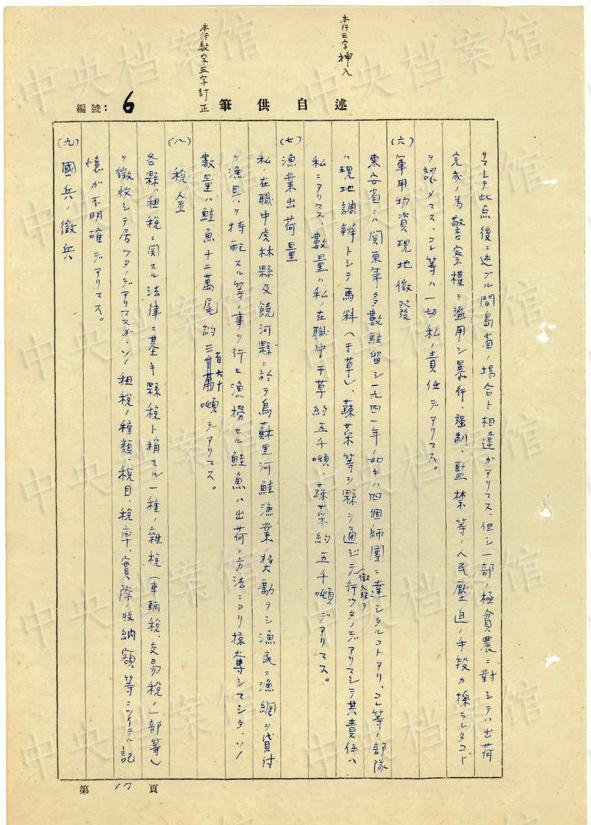 中央档案馆
本行三字挿入
本行数字三字訂正
編號：6
述自供筆
リマシテ此点後ニ述ブル間島省ノ場合ト相違ガアリマス。但シ一部ノ極貧農ニ対シテハ出荷
完成ノ為警察権ヲ濫用シ暴行、強制、監禁等ノ人民壓迫ノ手段ガ採ラレタコト
ヲ認メマス。コレ等ハ一切私ノ責任デアリマス。
(六) 軍用物資現地徴発
東安省ニハ関東軍ノ多数駐留シ一九四一年ノ如キハ四個師團ニ達シタルコトアリ、コレ等ノ部隊
ハ現地調辨トシテ馬料(干草)、蔬菜等ヲ縣ヲ通ジテ徴発ヲ行ツタノデアリマシテ其責任ハ
私ニアリマス。数量ハ私ノ在職中干草約五千噸、蔬菜約五千噸デアリマス。
(七) 漁業出荷量
私ノ在職中虎林縣及饒河縣ニ於テ烏蘇里河鮭漁業ヲ奨勵シ漁民ニ漁網ヲ貸付
ケ漁具ヲ特配スル等ノ事ヲ行ヒ漁撈セル鮭魚ハ出荷ノ方法ニヨリ掠奪シマシタ。ソノ
数量ハ鮭魚十二萬尾約三百六十噸デアリマス。
(八) 税金
各縣ノ租税ニ関スル法律ニ基キ縣税ト稱スル一種ノ雑税(車輌税、交易税ノ一部等)
ヲ徴收シテ居ツタノデアリマスガ、ソノ租税ノ種類、税目、税率、實際ノ收納額等ニツイテハ記
憶ガ不明確デアリマス。
(九) 國兵ノ徴兵
第 17 頁